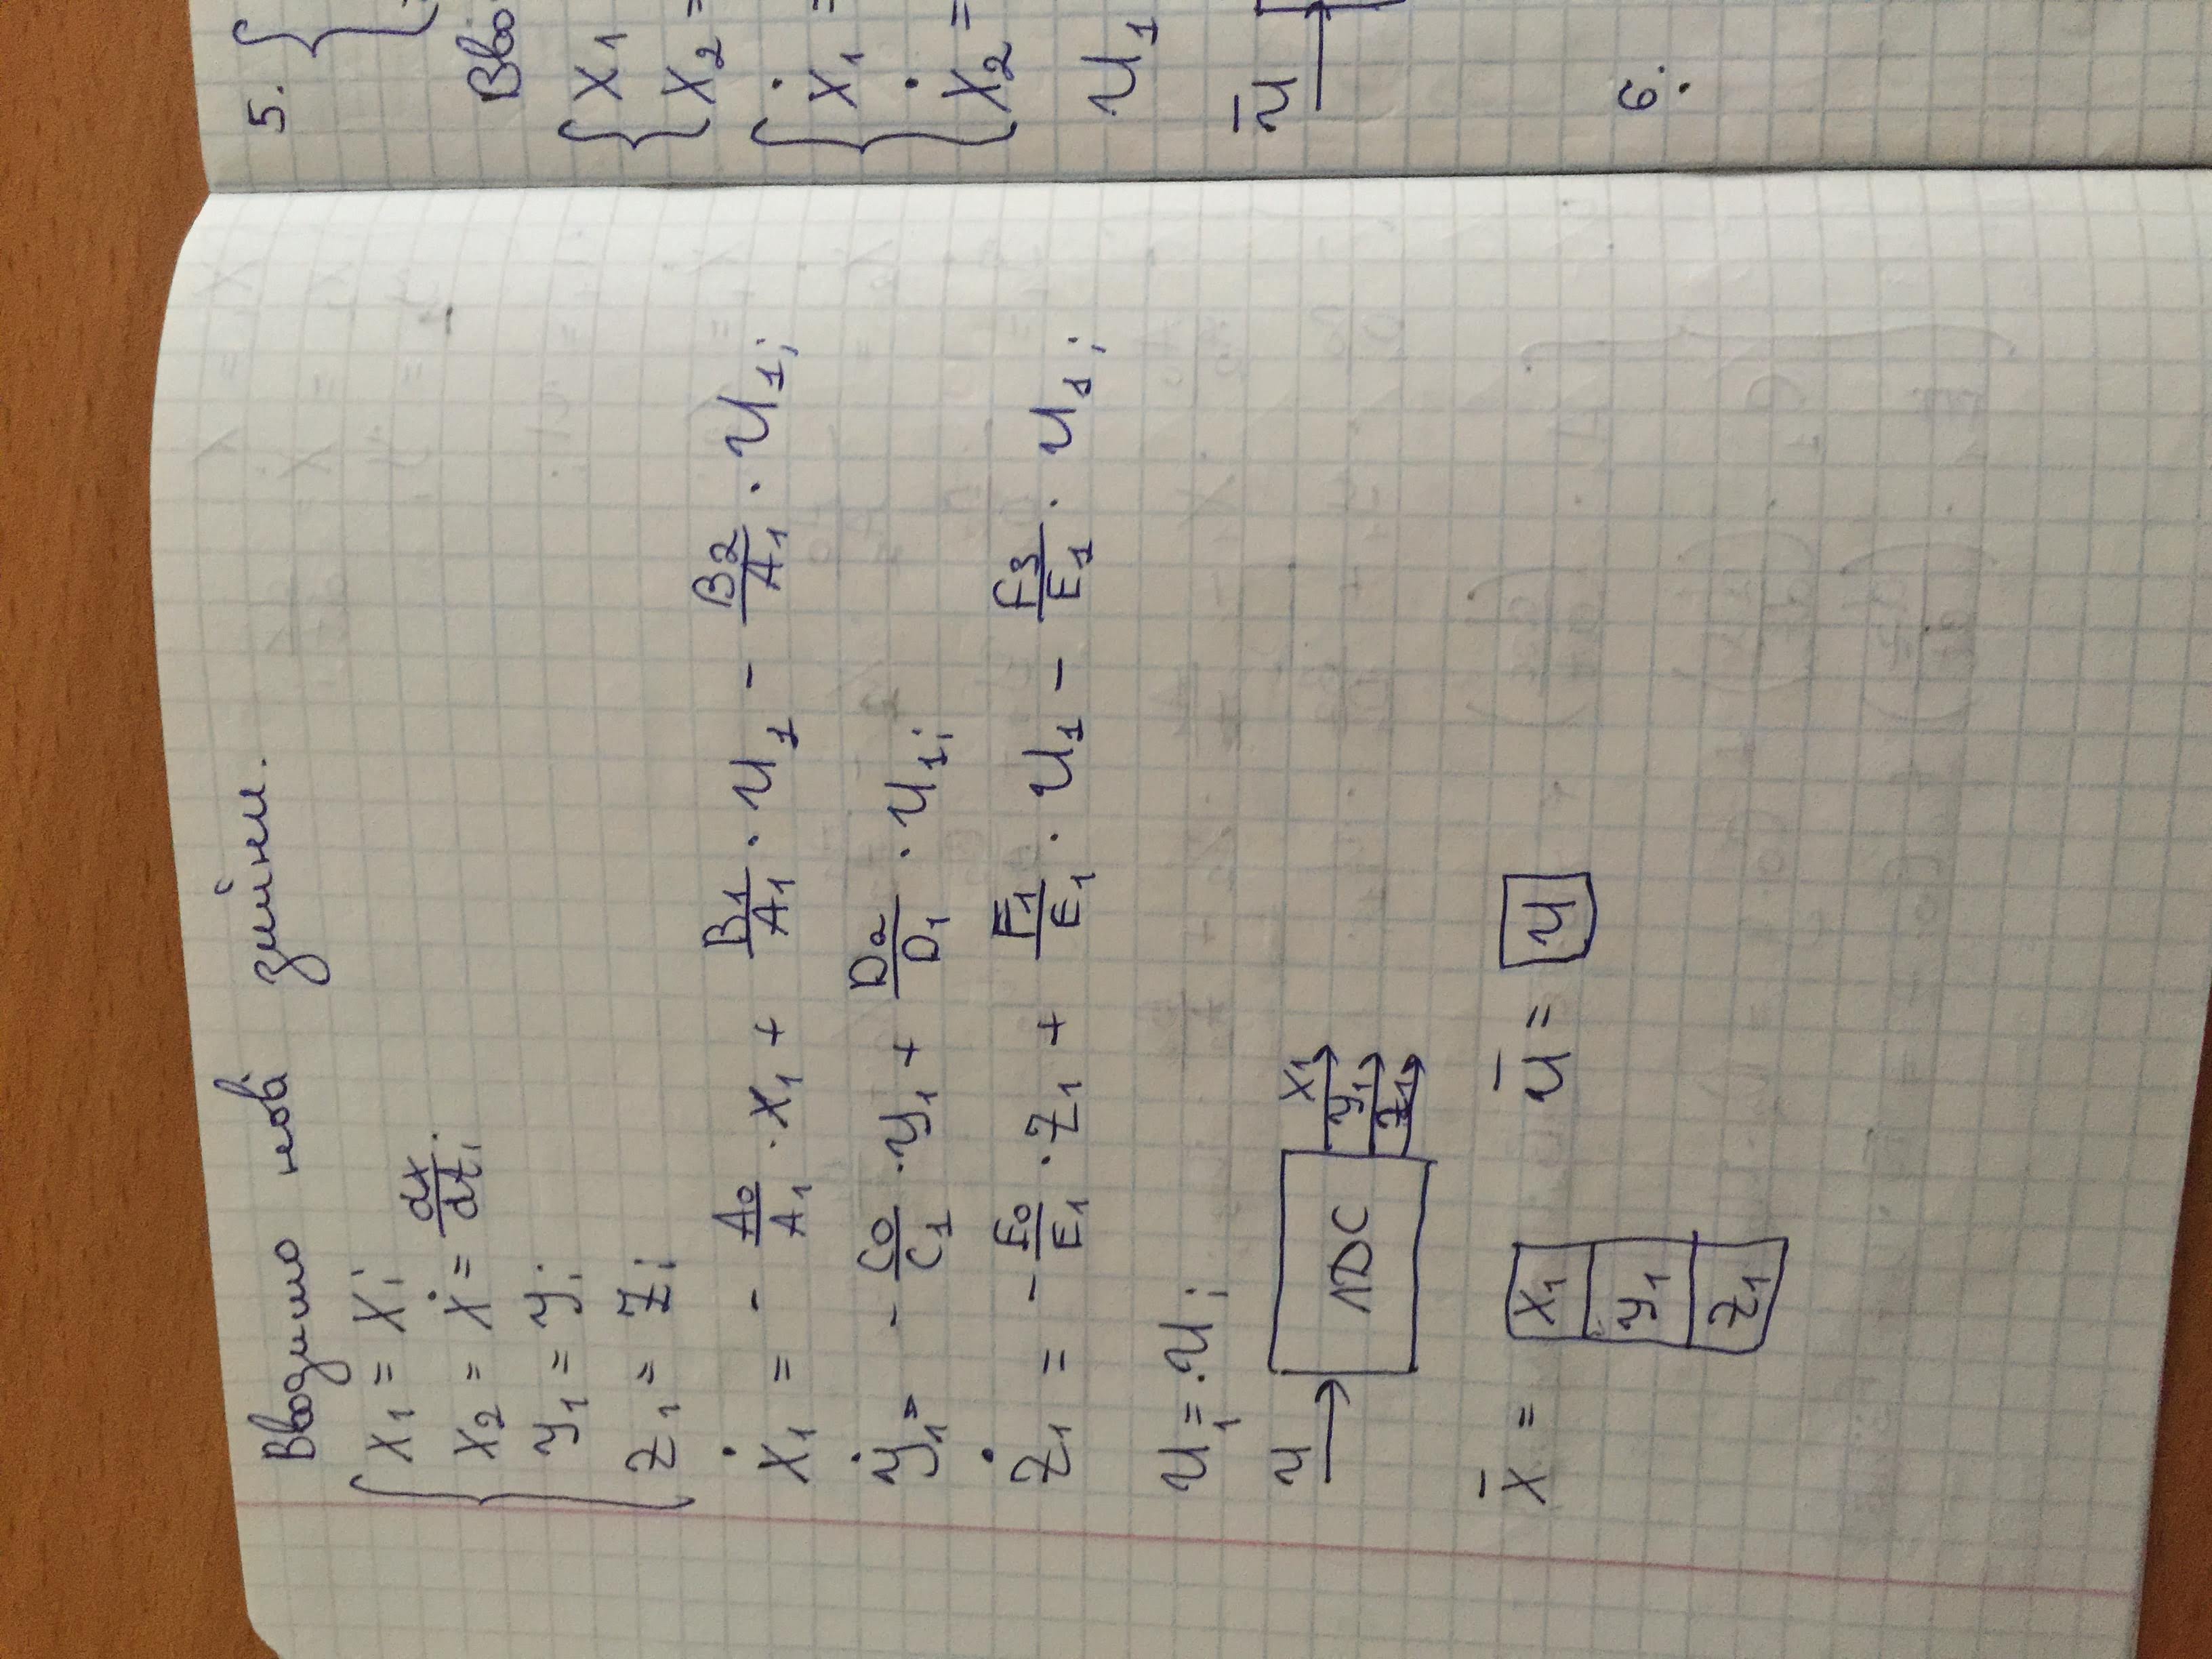 Вводимо нові змінни.
x₁ = x;
x₂ = ẋ = dx/dt;
y₁ = y;
z₁ = z;
ẋ₁ = - A₀/A₁ · x₁ + B₁/A₁ · u₁ - B₂/A₁ · u₁;
ẏ₁ = - C₀/C₁ · y₁ + D₂/D₁ · u₁;
ż₁ = - F₀/E₁ · z₁ + F₁/E₁ · u₁ - F₃/E₁ · u₁;
u₁ = · u;
u
ЛДС
x₁
y₁
z₁
x̄ =
x₁
y₁
z₁
ū = u
5. {
Вво
x₁
x₂ =
ẋ₁ =
ẋ₂ =
u₁
ū
6.